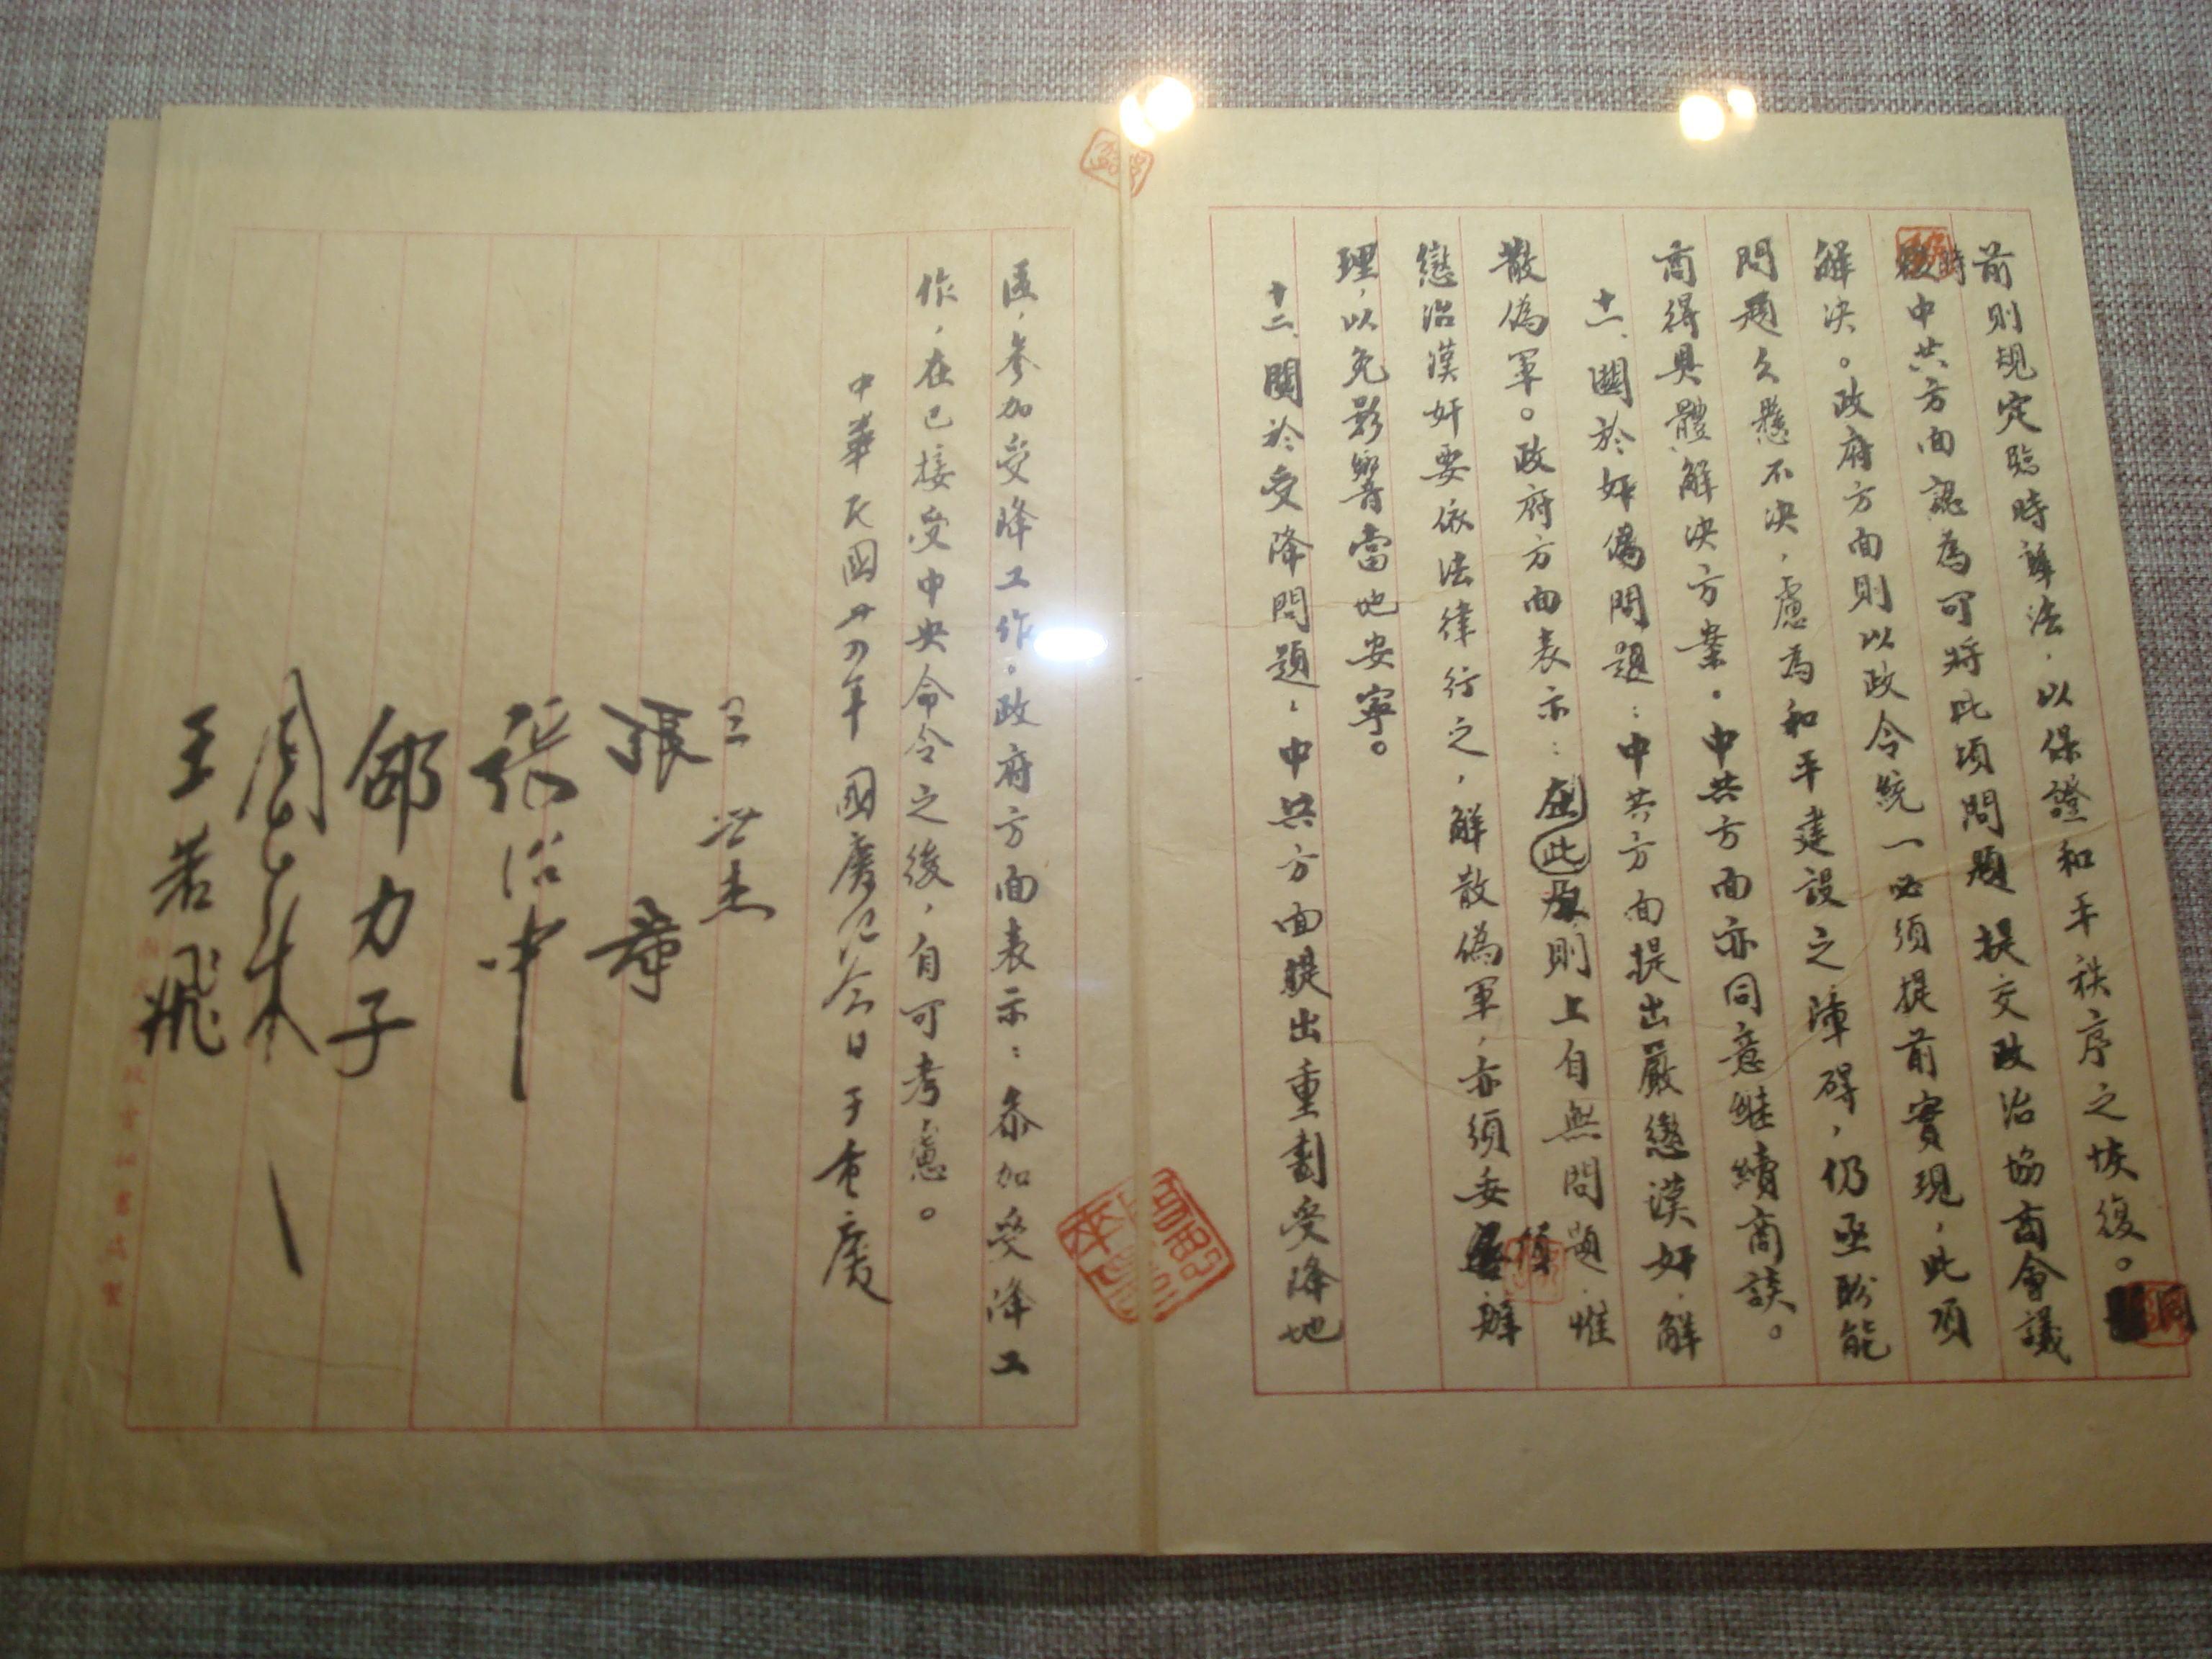 前則規定臨時辦法，以保證和平秩序之恢復。同
時中共方面認為可將此項問題提交政治協商會議
解決。政府方面則以政令統一必須提前實現，此項
問題久懸不決，慮為和平建設之障碍，仍亟盼能
商得具體解決方案。中共方面亦同意繼續商談。
十一、關於奸偽問題：中共方面提出嚴懲漢奸，解
散偽軍。政府方面表示：此在原則上自無問題，惟
懲治漢奸要依法律行之，解散偽軍，亦須妥慎辦
理，以免影響當地安寧。
十二、關於受降問題，中共方面提出重劃受降地
區，參加受降工作。政府方面表示：參加受降工
作，在已接受中央命令之後，自可考慮。
中華民國卅四年國慶紀念日于重慶
王世杰
張羣
張治中
邵力子
周恩來
王若飛